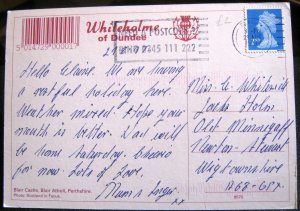 Whiteholme
of Dundee
5 014725 000017
POSTCODE
0345 111 222
Hello Elaine. We are having
a restful holiday here.
Weather mixed. Hope your
mouth is better. Dad will
be home Saturday. Cheerio
for now Lots of Love.
Mum &
Miss E
Holm
Old Minnigaff
Newton Stewart
Wigtownshire
DG8
Blair Castle, Blair Atholl, Perthshire.
Photo: Scotland in Focus.